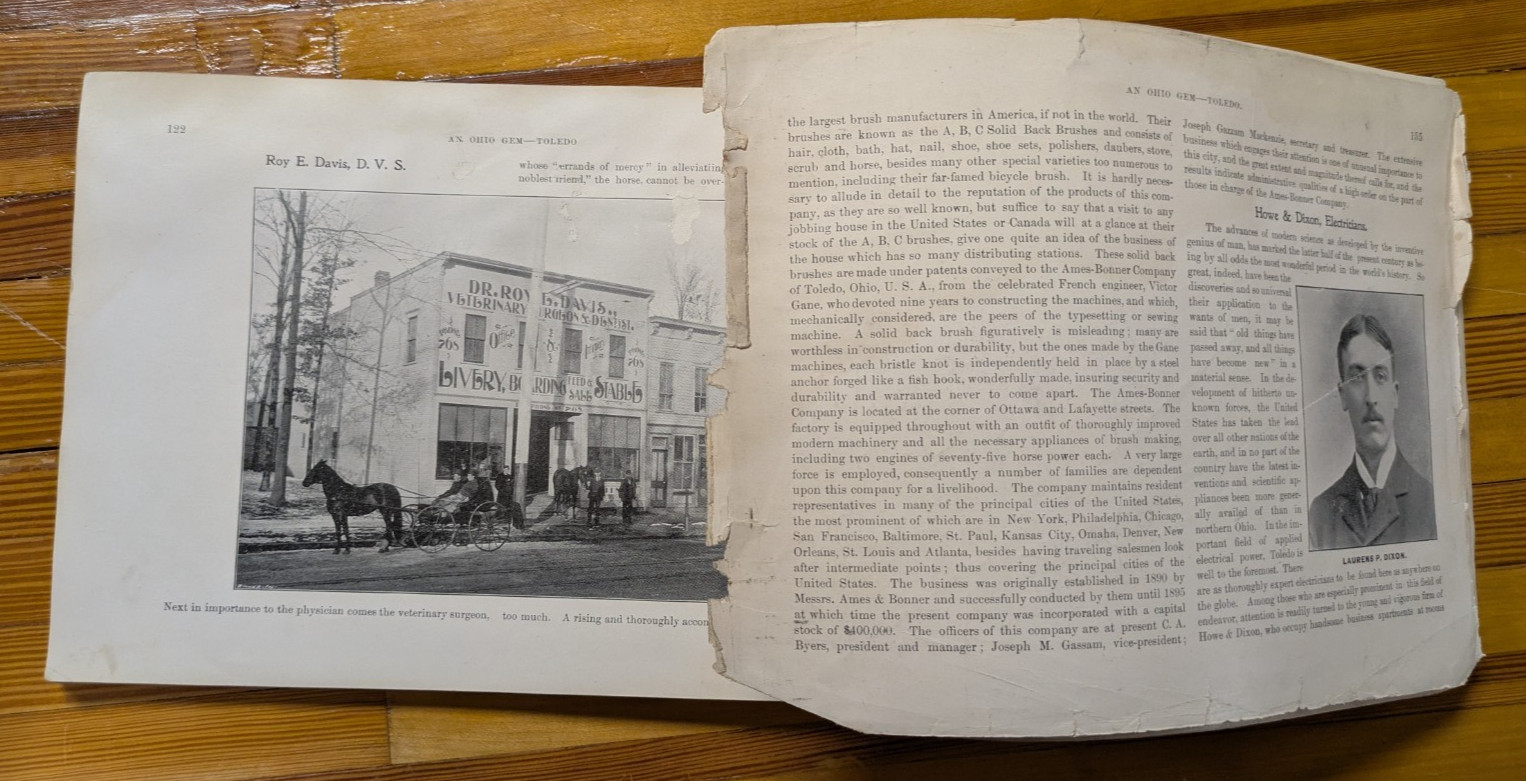 122
AN OHIO GEM—TOLEDO
Roy E. Davis, D. V. S.
whose "errands of mercy" in alleviatin
noblest friend," the horse, cannot be over-
DR. ROY E. DAVIS,
VETERINARY SURGEON & DENTIST.
PHONE 768
Office
PHONE 768
LIVERY, BOARDING FEED & SALE STABLE
Next in importance to the physician comes the veterinary surgeon,
too much. A rising and thoroughly accom
AN OHIO GEM—TOLEDO.
155
the largest brush manufacturers in America, if not in the world. Their
brushes are known as the A, B, C Solid Back Brushes and consists of
hair, cloth, bath, hat, nail, shoe, shoe sets, polishers, daubers, stove,
scrub and horse, besides many other special varieties too numerous to
mention, including their far-famed bicycle brush. It is hardly neces-
sary to allude in detail to the reputation of the products of this com-
pany, as they are so well known, but suffice to say that a visit to any
jobbing house in the United States or Canada will at a glance at their
stock of the A, B, C brushes, give one quite an idea of the business of
the house which has so many distributing stations. These solid back
brushes are made under patents conveyed to the Ames-Bonner Company
of Toledo, Ohio, U. S. A., from the celebrated French engineer, Victor
Gane, who devoted nine years to constructing the machines, and which,
mechanically considered, are the peers of the typesetting or sewing
machine. A solid back brush figuratively is misleading; many are
worthless in construction or durability, but the ones made by the Gane
machines, each bristle knot is independently held in place by a steel
anchor forged like a fish hook, wonderfully made, insuring security and
durability and warranted never to come apart. The Ames-Bonner
Company is located at the corner of Ottawa and Lafayette streets. The
factory is equipped throughout with an outfit of thoroughly improved
modern machinery and all the necessary appliances of brush making,
including two engines of seventy-five horse power each. A very large
force is employed, consequently a number of families are dependent
upon this company for a livelihood. The company maintains resident
representatives in many of the principal cities of the United States,
the most prominent of which are in New York, Philadelphia, Chicago,
San Francisco, Baltimore, St. Paul, Kansas City, Omaha, Denver, New
Orleans, St. Louis and Atlanta, besides having traveling salesmen look
after intermediate points; thus covering the principal cities of the
United States. The business was originally established in 1890 by
Messrs. Ames & Bonner and successfully conducted by them until 1895
at which time the present company was incorporated with a capital
stock of $400,000. The officers of this company are at present C. A.
Byers, president and manager; Joseph M. Gassam, vice-president;
Joseph Gazzam Mackenzie, secretary and treasurer. The extensive
business which engages their attention is one of unusual importance to
this city, and the great extent and magnitude thereof calls for, and the
results indicate administrative qualities of a high order on the part of
those in charge of the Ames-Bonner Company.
Howe & Dixon, Electricians.
The advances of modern science as developed by the inventive
genius of man, has marked the latter half of the present century as be-
ing by all odds the most wonderful period in the world's history. So
great, indeed, have been the
discoveries and so universal
their application to the
wants of men, it may be
said that "old things have
passed away, and all things
have become new" in a
material sense. In the de-
velopment of hitherto un-
known forces, the United
States has taken the lead
over all other nations of the
earth, and in no part of the
country have the latest in-
ventions and scientific ap-
pliances been more gener-
ally availed of than in
northern Ohio. In the im-
portant field of applied
electrical power, Toledo is
well to the foremost. There
LAURENS P. DIXON.
are as thoroughly expert electricians to be found here as anywhere on
the globe. Among those who are especially prominent in this field of
endeavor, attention is readily turned to the young and vigorous firm of
Howe & Dixon, who occupy handsome business apartments at rooms